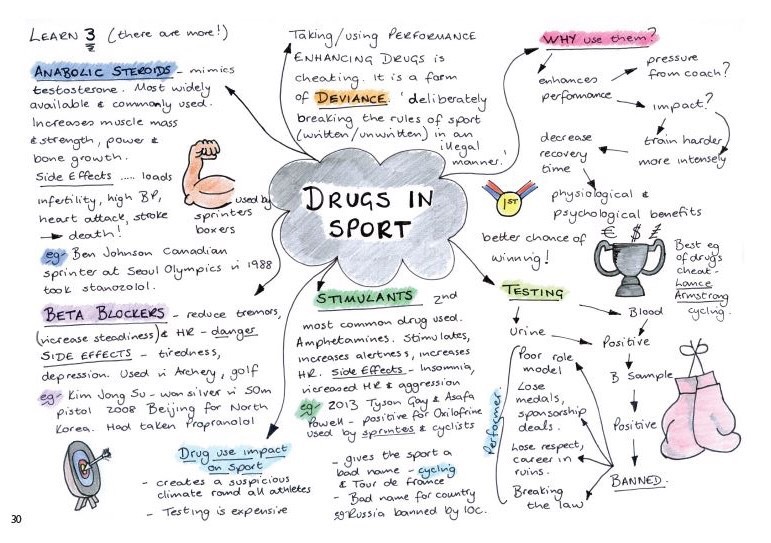 LEARN 3 (there are more!)
ANABOLIC STEROIDS - mimics
testosterone. Most widely
available & commonly used.
Increases muscle mass
& strength, power &
bone growth.
Side Effects ..... loads
infertility, high BP,
heart attack, stroke
→ death!
used by
sprinters
boxers
eg - Ben Johnson Canadian
sprinter at Seoul Olympics in 1988
took stanozolol.
Taking/using PERFORMANCE
ENHANCING DRUGS is
cheating. It is a form
of DEVIANCE. 'deliberately
breaking the rules of sport
(written/unwritten) in an
illegal
manner.'
DRUGS IN
SPORT
WHY use them?
enhances
performance
pressure
from coach?
impact?
train harder
more intensely
decrease
recovery
time
physiological &
psychological benefits
1ST
better chance of
winning!
€ $ £
Best eg
of drugs
cheat -
Lance
Armstrong
cycling.
BETA BLOCKERS - reduce tremors,
(increase steadiness) & HR - danger
SIDE EFFECTS - tiredness,
depression. Used in Archery, golf
eg - Kim Jong Su - won silver in 50m
pistol 2008 Beijing for North
Korea. Had taken Propranolol
STIMULANTS 2nd
most common drug used.
Amphetamines. Stimulates,
increases alertness, increases
HR. Side Effects - Insomnia,
increased HR & aggression
eg - 2013 Tyson Gay & Asafa
Powell - positive for Oxilofrine
used by sprinters & cyclists
TESTING
Urine
Blood
Positive
B Sample
Positive
BANNED.
Performer
Poor role
model
Lose
medals,
sponsorship
deals.
Lose respect,
career in
ruins.
Breaking
the law
Drug use impact
on Sport
- creates a suspicious
climate round all athletes
- Testing is expensive
- gives the sport a
bad name - cycling
& Tour de France
- Bad name for country
eg Russia banned by IOC.
30